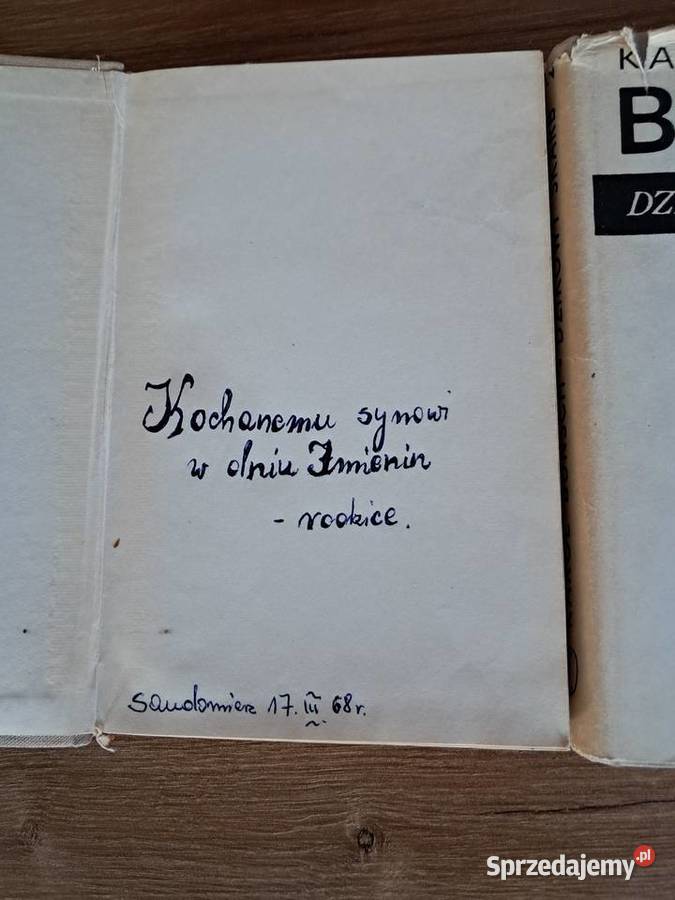 Kochanemu synowi
w dniu Imienin
- rodzice.
Sandomierz 17. III 68 r.
KA
B
DZI
Sprzedajemy.pl